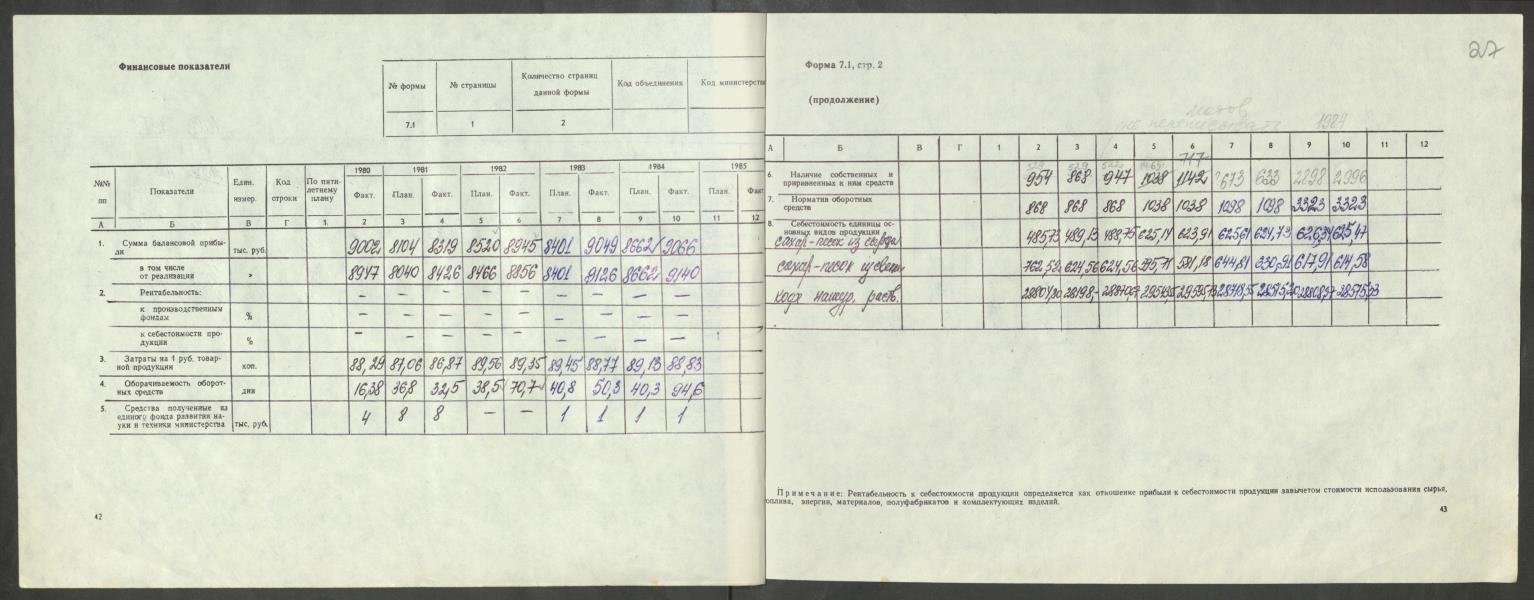 Финансовые показатели
№ формы № страницы Количество страниц данной формы Код объединения Код министерств
7.1 1 2
№№ пп Показатели Един. измер. Код строки По пяти-летнему плану 1980 1981 1982 1983 1984 1985
Факт. План. Факт. План. Факт. План. Факт. План. Факт. План. Факт
А Б В Г 1. 2 3 4 5 6 7 8 9 10 11 12
1. Сумма балансовой прибы-
ли тыс. руб. 9002 8104 8319 8520 8945 8401 9049 8662 9066
в том числе
от реализации » 8947 8040 8426 8466 8856 8401 9126 8662 9140
2. Рентабельность: — — — — — — — — —
к производственным
фондам % — — — — — — — — —
к себестоимости про-
дукции % — — — — — — — — —
3. Затраты на 1 руб. товар-
ной продукции коп. 88,29 87,06 86,87 89,56 89,35 89,45 88,77 89,13 88,83
4. Оборачиваемость оборот-
ных средств дни 16,38 36,8 32,5 38,5 70,7 40,8 50,3 40,3 94,6
5. Средства полученные из
единого фонда развития на-
уки и техники министерства тыс. руб. 4 8 8 — — 1 1 1 1
42
27
Форма 7.1, стр. 2
(продолжение)
не 1984
А Б В Г 1 2 3 4 5 6 7 8 9 10 11 12
717
6. Наличие собственных и
приравненных к ним средств 954 868 947 1038 1142 673 633 2898 2996
7. Норматив оборотных
средств 868 868 868 1038 1038 1098 1098 3323 3323
8. Себестоимость единицы ос-
новных видов продукции
сахар-песок из свеклы 485,73 489,13 488,75 625,14 623,91 625,61 624,73 626,34 625,47
сахар-песок из 762,52 624,56 624,56 595,71 581,18 644,81 330,91 617,91 614,58
кодх натур. раств. 28198,-
Примечание: Рентабельность к себестоимости продукции определяется как отношение прибыли к себестоимости продукции завычетом стоимости использования сырья,
оплива, энергии, материалов, полуфабрикатов и комплектующих изделий.
43